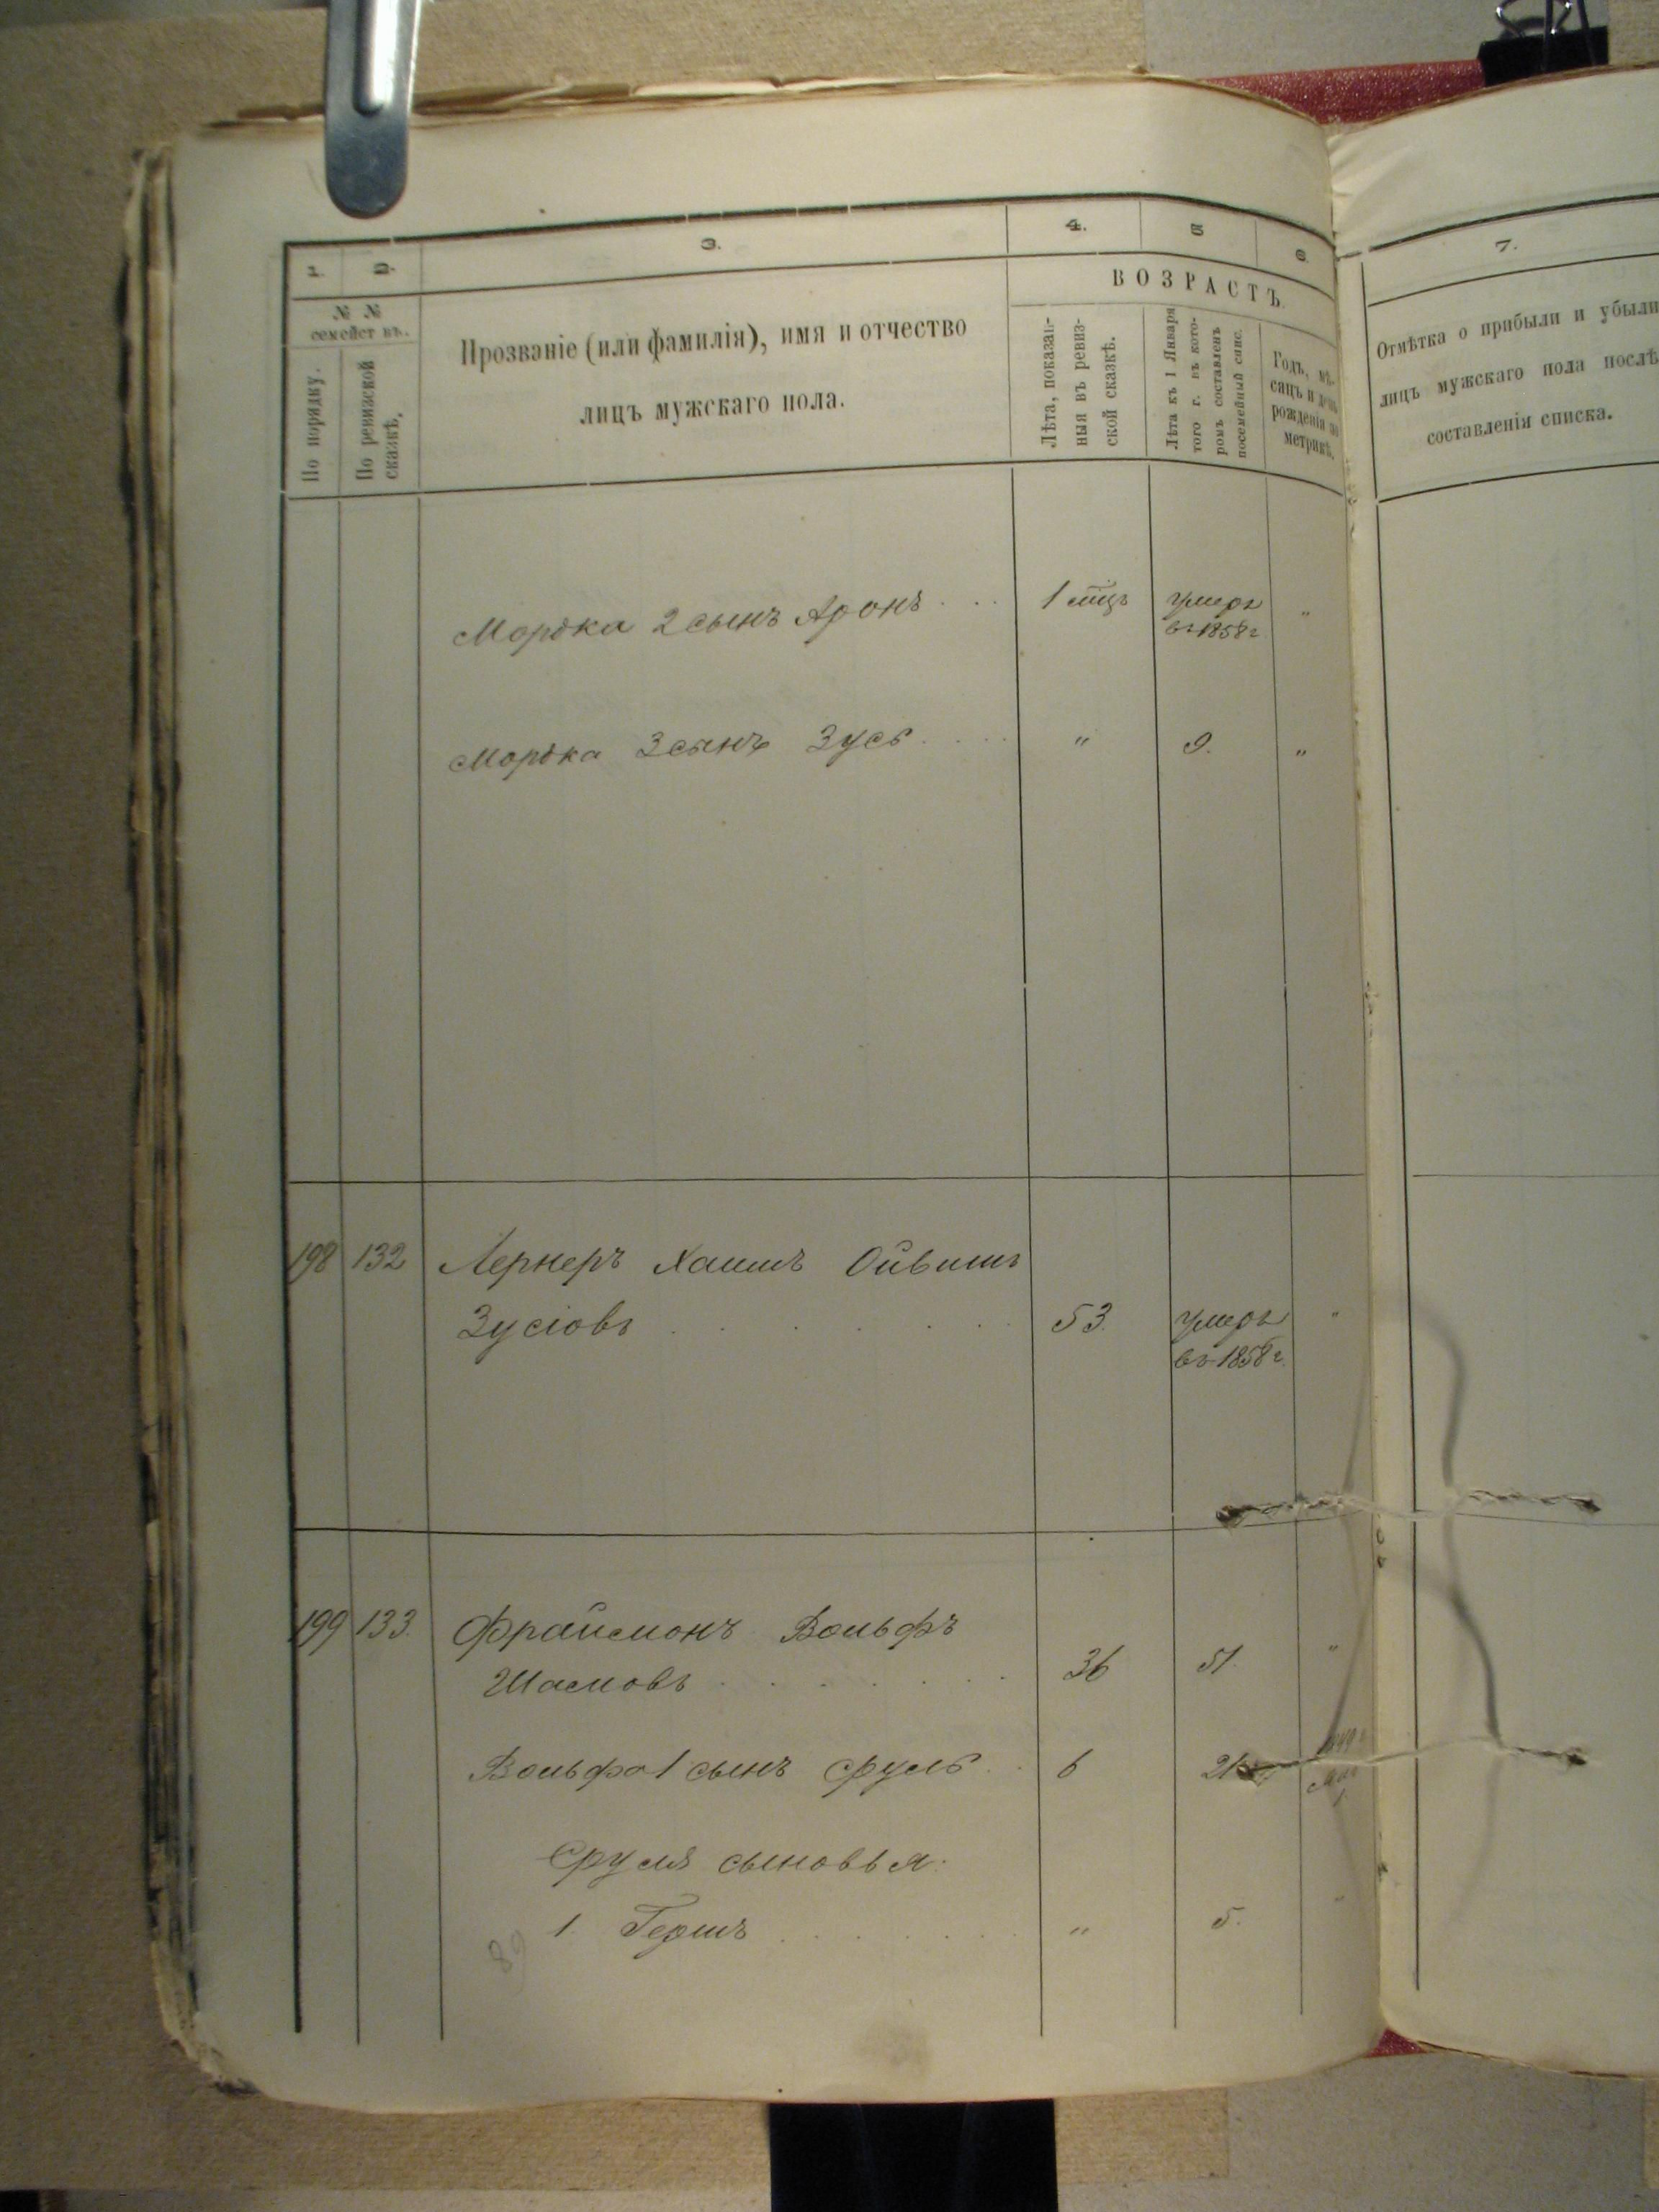 1. 2. 3. 4. 5 6. 7.
№ №
семействъ.
По порядку.
По ревизской сказкѣ.
Прозваніе (или фамилія), имя и отчество
лицъ мужскаго пола.
ВОЗРАСТЪ.
Лѣта, показан-
ныя въ ревиз-
ской сказкѣ.
Лѣта къ 1 Января
того г. въ кото-
ромъ составленъ
посемейный спис.
Годъ, мѣ-
сяцъ и день
рожденія по
метрикѣ.
Отмѣтка о прибыли и убыли
лицъ мужскаго пола послѣ
составленія списка.
Мордка 2 сынъ Аронъ . . . 1 мѣц. умеръ "
въ 1858 г.
Мордка 3 сынъ Зусь . . . . " 9. "
198 132 Лернеръ Хаимъ Ойвишъ
Зусіовъ . . . . . . 53. умеръ "
въ 1858 г.
199 133. Фрайсмонъ Вольфъ
Шасмовъ . . . . . . 36 51. "
Вольфа 1 сынъ Сруль . . 6 21
Сруля сыновья:
1. Гершъ . . . . . . . " 5. "
89